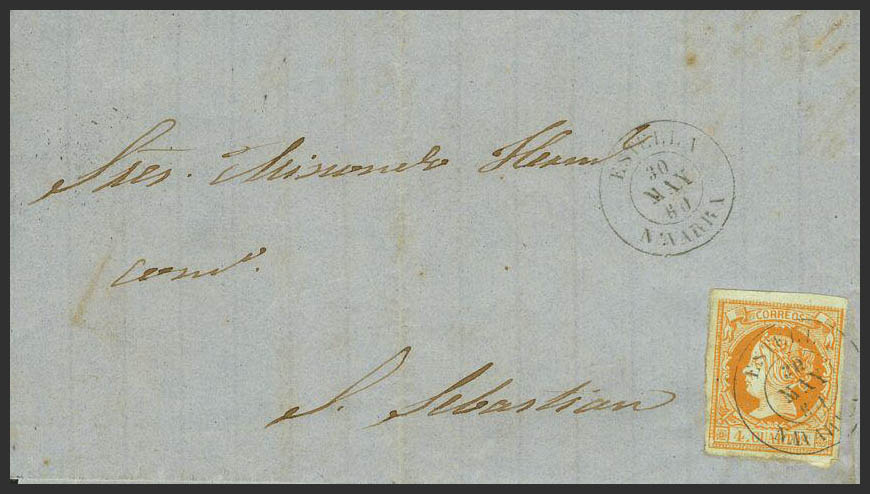 Sres. Minondo Herm^s
com^o.
S. Sebastian
ESTELLA
30
MAY
60
NAVARRA
CORREOS
ESTELLA
30
MAY
NAVARRA
4 CUARTOS